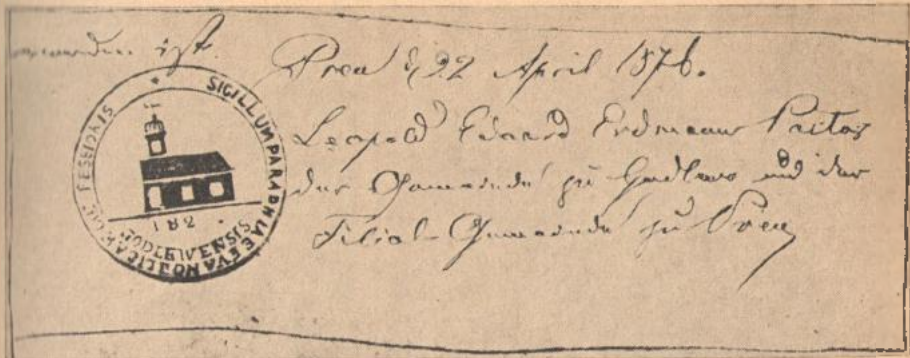 ist.
Pren d. 22 April 1876.
Leopold Eduard Erdmann Pastor
der Gemeinde zu Godlewo und der
Filial-Gemeinde zu Pren
SIGILLUM PAROCHIAE EVANGELICAE
182
GODLEWENSIS